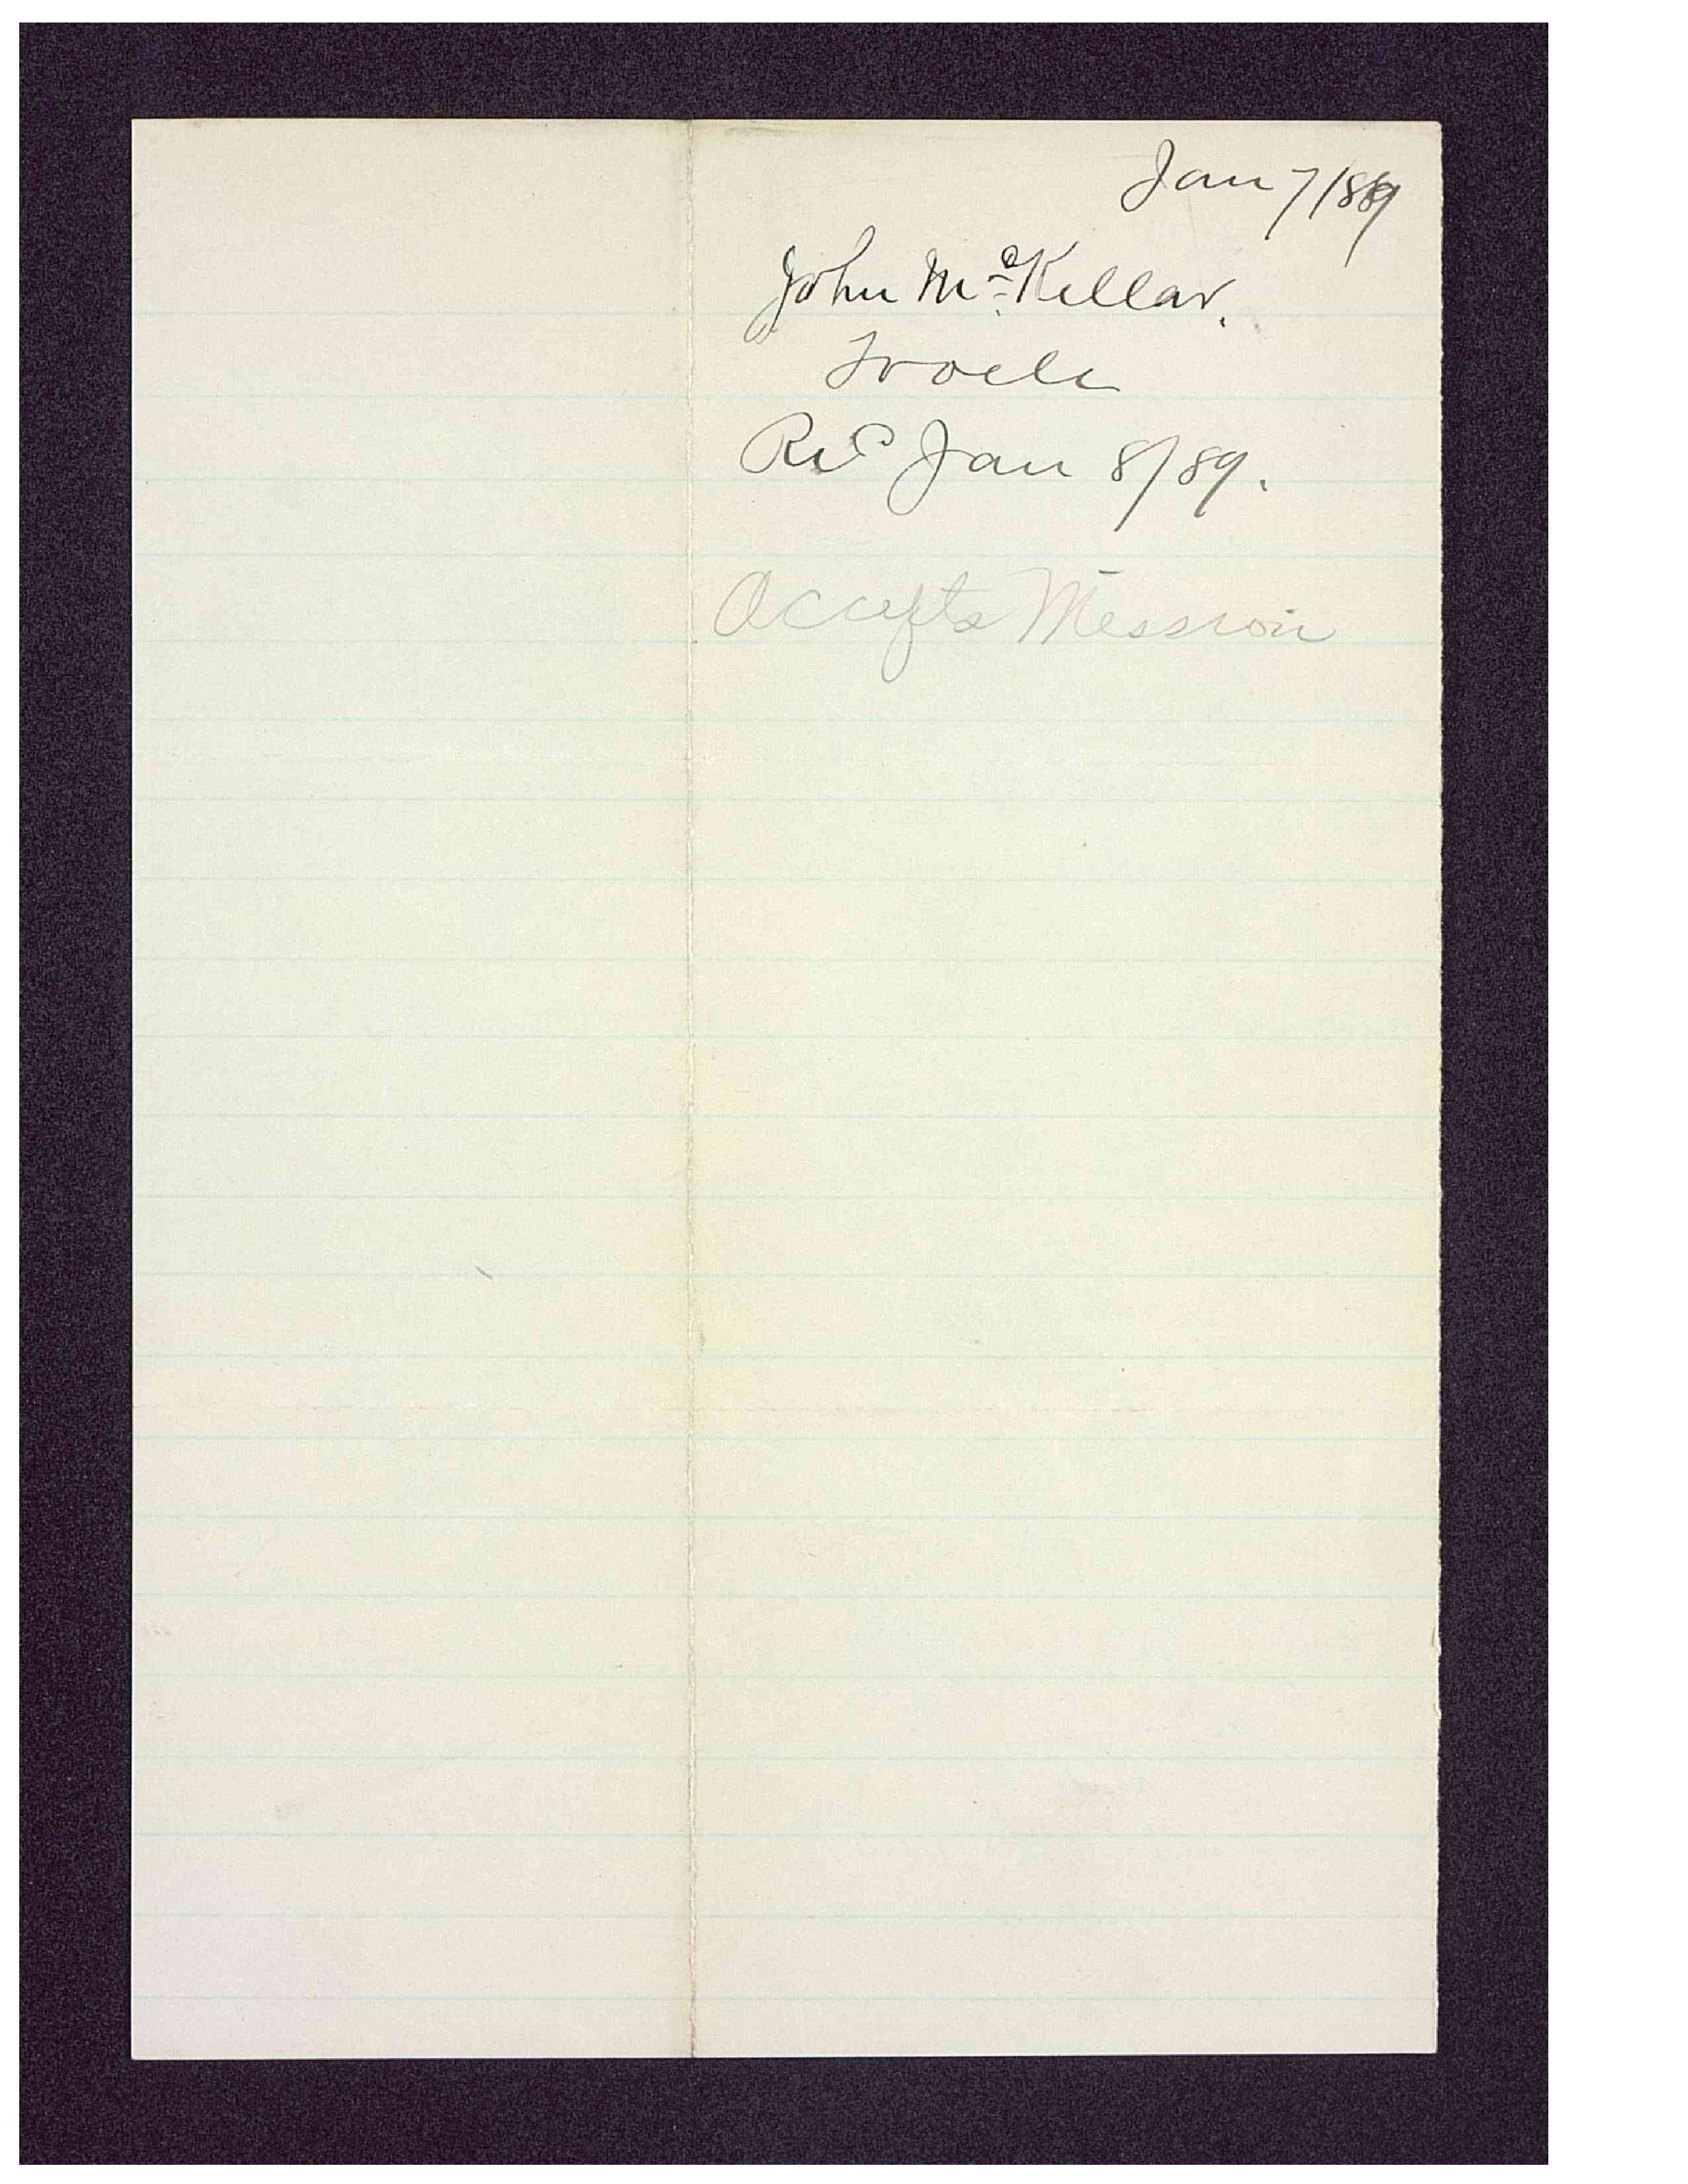 Jan 7/89
John McKellar.
Tooele
Rec Jan 8/89.
Accepts Mission